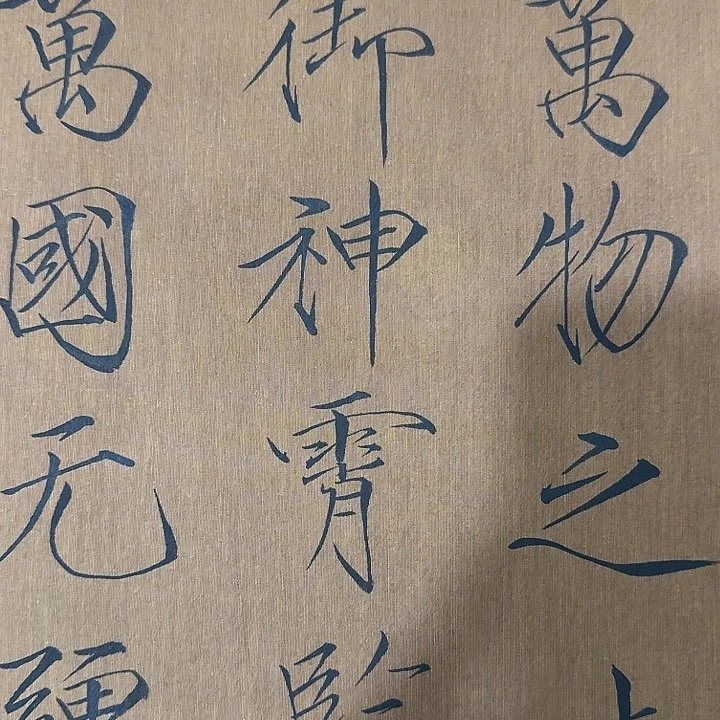 萬物之
御神霄監
萬國无